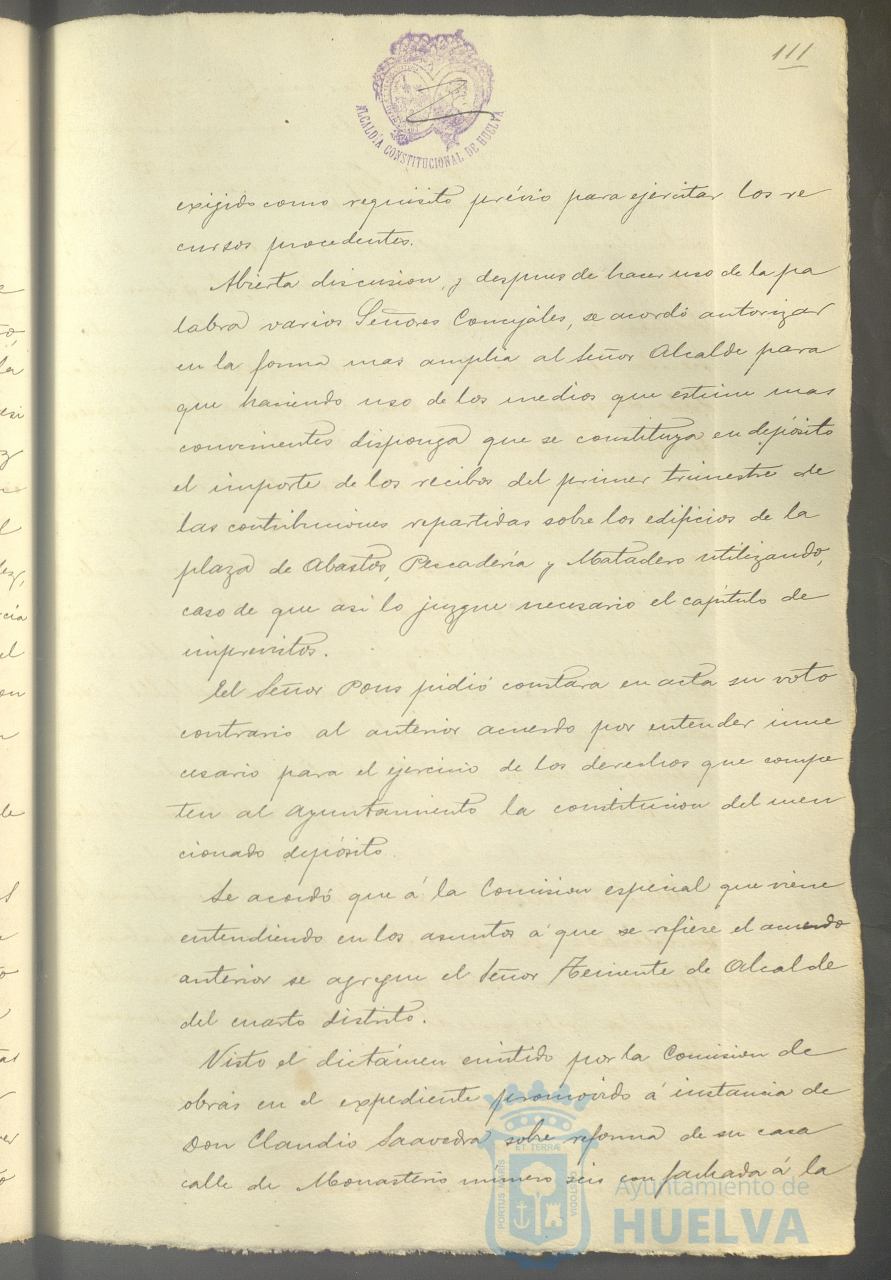 111
ALCALDÍA CONSTITUCIONAL DE HUELVA
exijido como requisito prévio para ejercitar los re
cursos procedentes.
Abierta discusion, y despues de hacer uso de la pa
labra varios Señores Concejáles, se acordó autorizar
en la forma mas amplia al Señor Alcalde para
que haciendo uso de los medios que estime mas
convenientes disponga que se constituya en depósito
el importe de los recibos del primer trimestre de
las contribuciones repartidas sobre los edificios de la
plaza de Abastos, Pescadería y Matadero utilizando,
caso de que asi lo juzgue necesario el capítulo de
imprevistos.
El Señor Pons pidió constara en acta su voto
contrario al anterior acuerdo por entender inne
cesario para el ejercicio de los derechos que compe
ten al Ayuntamiento la constitucion del men
cionado depósito
Se acordó que á la Comision especial que viene
entendiendo en los asuntos á que se refiere el acuerdo
anterior se agregue el Señor Teniente de Alcalde
del cuarto distrito.
Visto el dictámen emitido por la Comision de
obras en el expediente promovido á instancia de
Don Claudio Saavedra sobre reforma de su casa
calle de Monasterio numero seis con fachada á la
PORTUS MARIS ET TERRÆ CUSTODIA
Ayuntamiento de
HUELVA